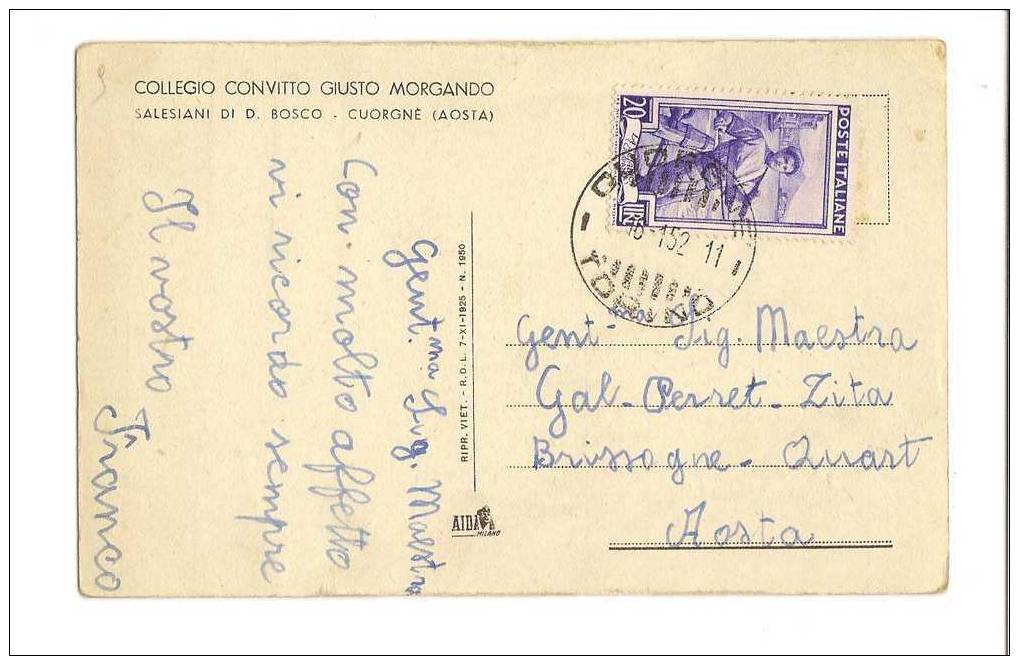 COLLEGIO CONVITTO GIUSTO MORGANDO
SALESIANI DI D. BOSCO - CUORGNÈ (AOSTA)
Gent.ma Sig. Maestra
Con molto affetto
vi ricordo sempre
Il vostro
Franco
RIPR. VIET. - R.D.L. 7-XI-1925 - N. 1950
AIDA
MILANO
20
LIRE
POSTE ITALIANE
-152 11
TORINO
Gent- Sig. Maestra
Gal-Perret-Zita
Brissogne-Quart
Aosta